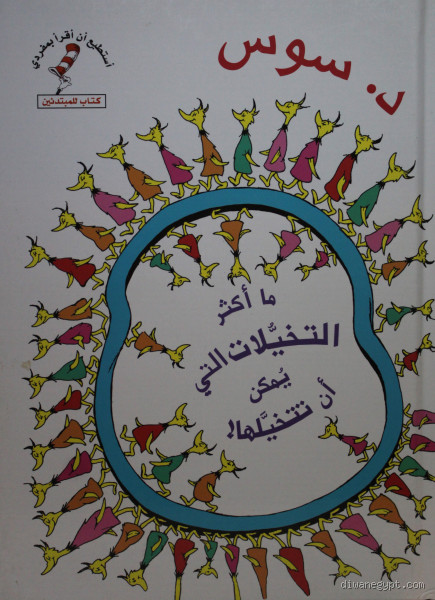 د. سوس
أستطيع أن أقرأ بمفردي
كتاب للمبتدئين
ما أكثر
التخيُّلات التي
يُمكن
أن نتخيَّلها!
diwanegypt.com